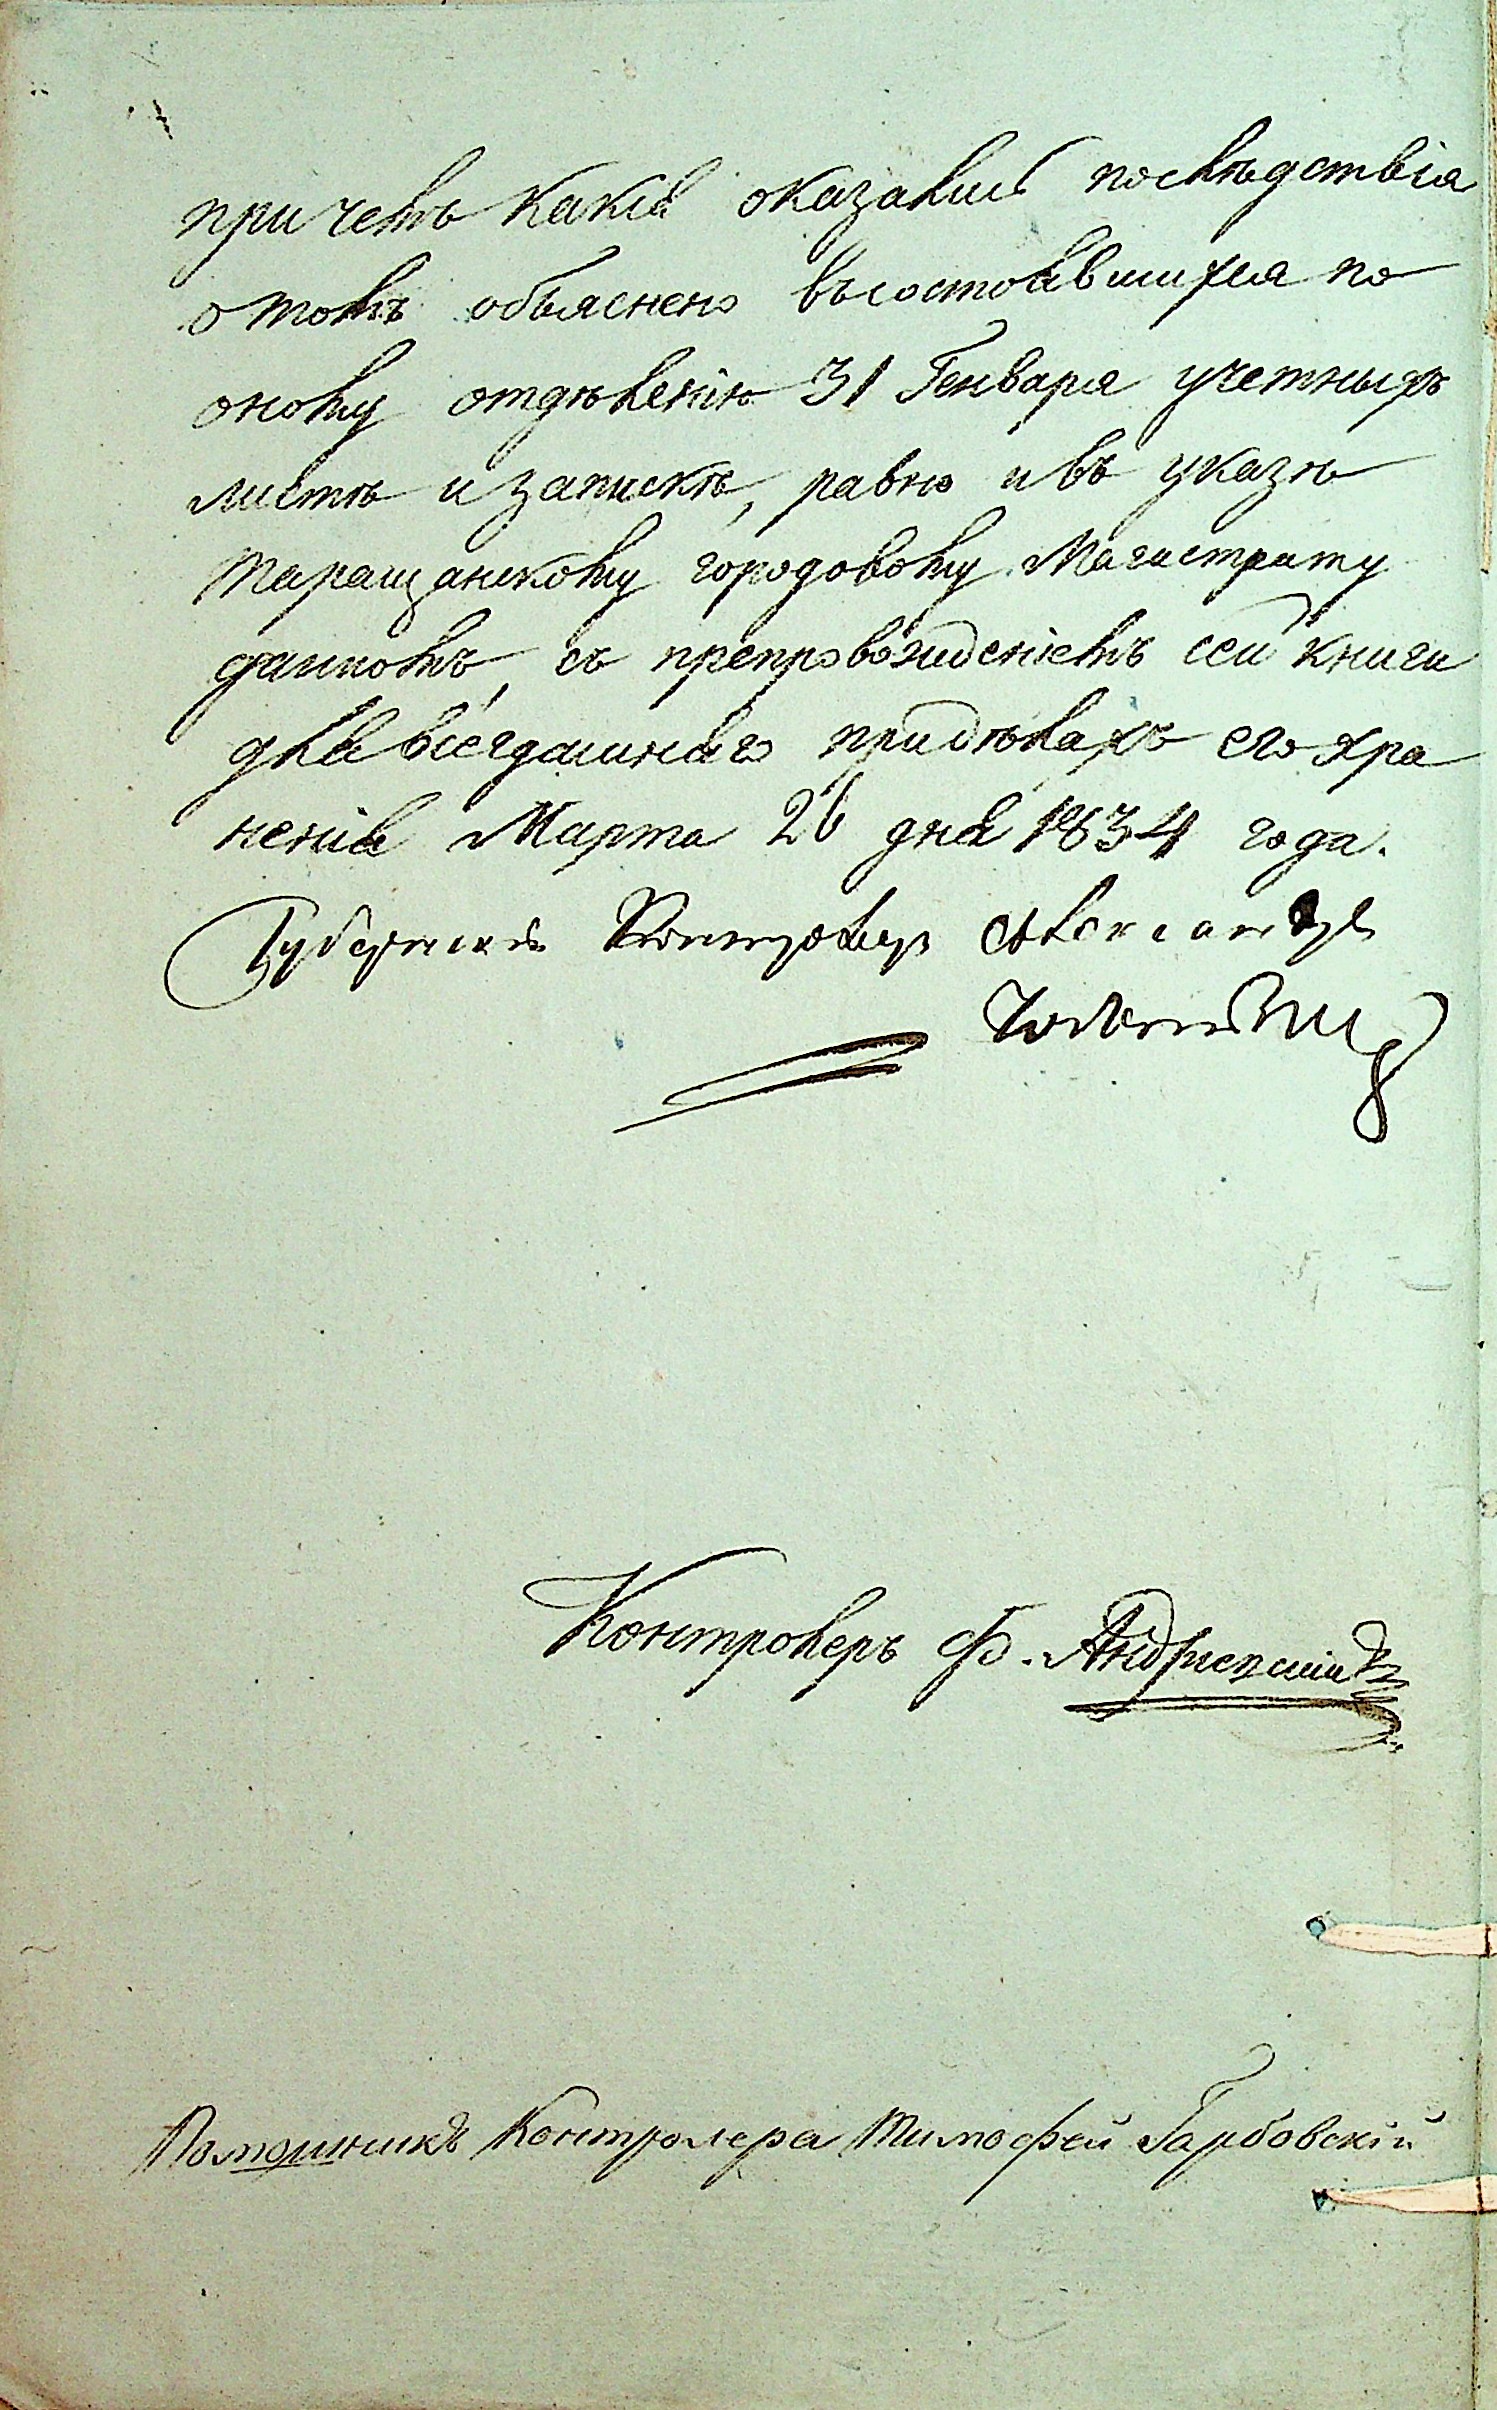 при чемъ какія оказались послѣдствія
о томъ объяснено въ состоявшихся по
оному отдѣленію 31 Генваря учетныхъ
листѣ и запискѣ, равно и въ указѣ
Таращанскому городовому Магистрату
данномъ, съ препровожденіемъ сей книги
для всегдашняго при дѣлахъ его хра
ненія Марта 26 дня 1834 года.
Губернскій Контролеръ Александръ
Контролеръ Ф. Андріевскій
Помощникъ Контролера Тимофей Гарбовскій